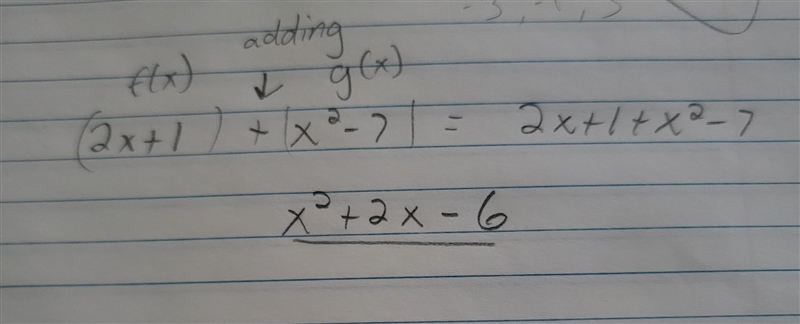 adding
f(x) ↓ g(x)
(2x+1) + |x²-7| = 2x+1+x²-7
x²+2x-6